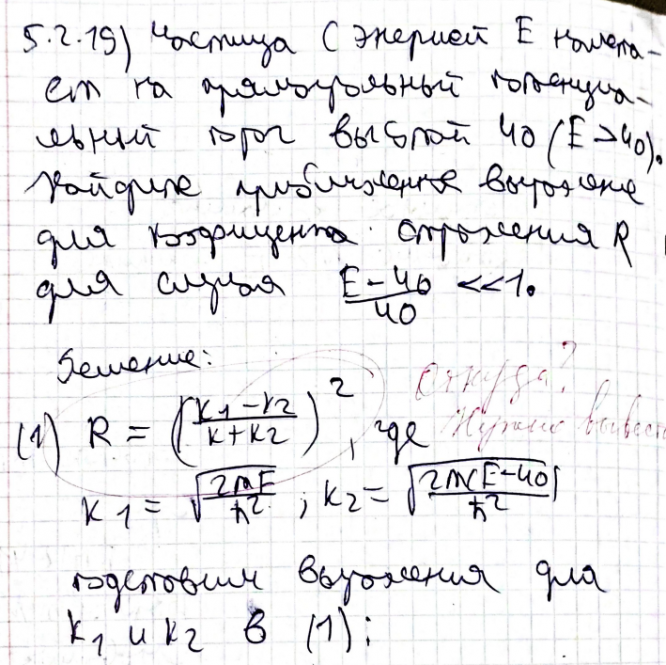 5.2.19) Частица с энергией E налета-
ет на прямоугольный потенциа-
льный порог высотой U0 (E > U0).
Найдите приближенное выражение
для коэффицента отражения R
для случая (E - U0)/U0 << 1.
Решение:
Откуда?
(1) R = ((k1 - k2)/(k + k2))^2, где
Нужно вывест
k1 = √(2mE/ħ^2) ; k2 = √(2m(E - U0)/ħ^2)
подставим выражения для
k1 и k2 в (1):